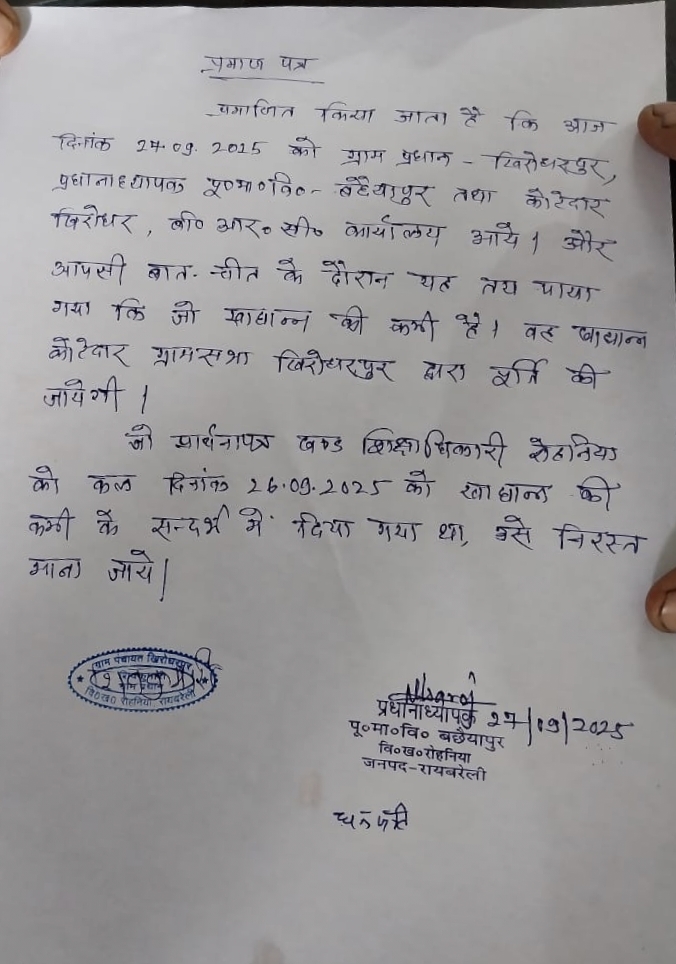 प्रमाण पत्र
प्रमाणित किया जाता है कि आज
दिनांक 27.09.2025 को ग्राम प्रधान - खिरोधरपुर,
प्रधानाध्यापक पू०मा०वि०- बछैयापुर तथा कोटेदार
खिरोधर, बी० आर० सी० कार्यालय आये। और
आपसी बात-चीत के दौरान यह तय पाया
गया कि जो खाद्यान्न की कमी है। वह खाद्यान्न
कोटेदार ग्रामसभा खिरोधरपुर द्वारा पूर्ति की
जायेगी।
जो प्रार्थनापत्र खण्ड शिक्षाधिकारी रोहनिया
को कल दिनांक 26.09.2025 को खाद्यान्न की
कमी के सन्दर्भ में दिया गया था, उसे निरस्त
माना जाये।
ग्राम पंचायत खिरोधरपुर
वि०ख० रोहनिया रायबरेली
प्रधानाध्यापक 27/09/2025
पू०मा०वि० बछैयापुर
वि०ख०रोहनिया
जनपद-रायबरेली